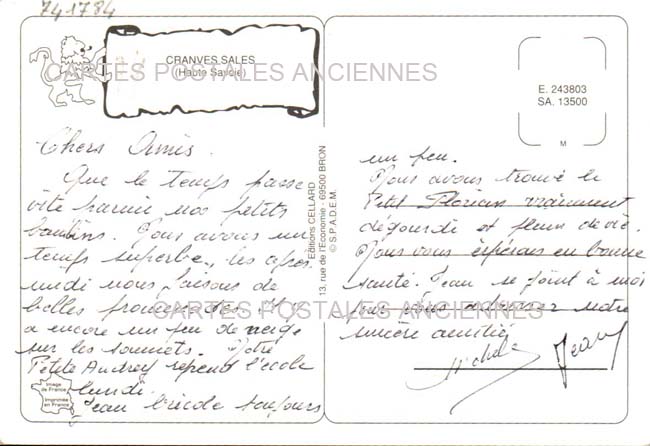 741784
CRANVES SALES
(Haute Savoie)
CARTES POSTALES ANCIENNES
E. 243803
SA. 13500
M
Chers Amis.
Que le temps passe
vite parmi nos petits
bambins. Nous avons un
temps superbe, les après
midi nous faisons de
belles promenades. Il y
a encore un peu de neige
sur les sommets. Notre
Petite Audrey reprend l'école
lundi.
Jean bricole toujours
Image
de France
Imprimée
en France
Editions CELLARD
13, rue de l'Économie - 69500 BRON
© S.P.A.D.E.M.
un peu.
Nous avons trouvé le
Petit Florian vraiment
dégourdi et plein de vie.
Nous vous espérons en bonne
santé. Jean se joint à moi
pour vous adresser notre
sincère amitié
CARTES POSTALES ANCIENNES
Michele Jean